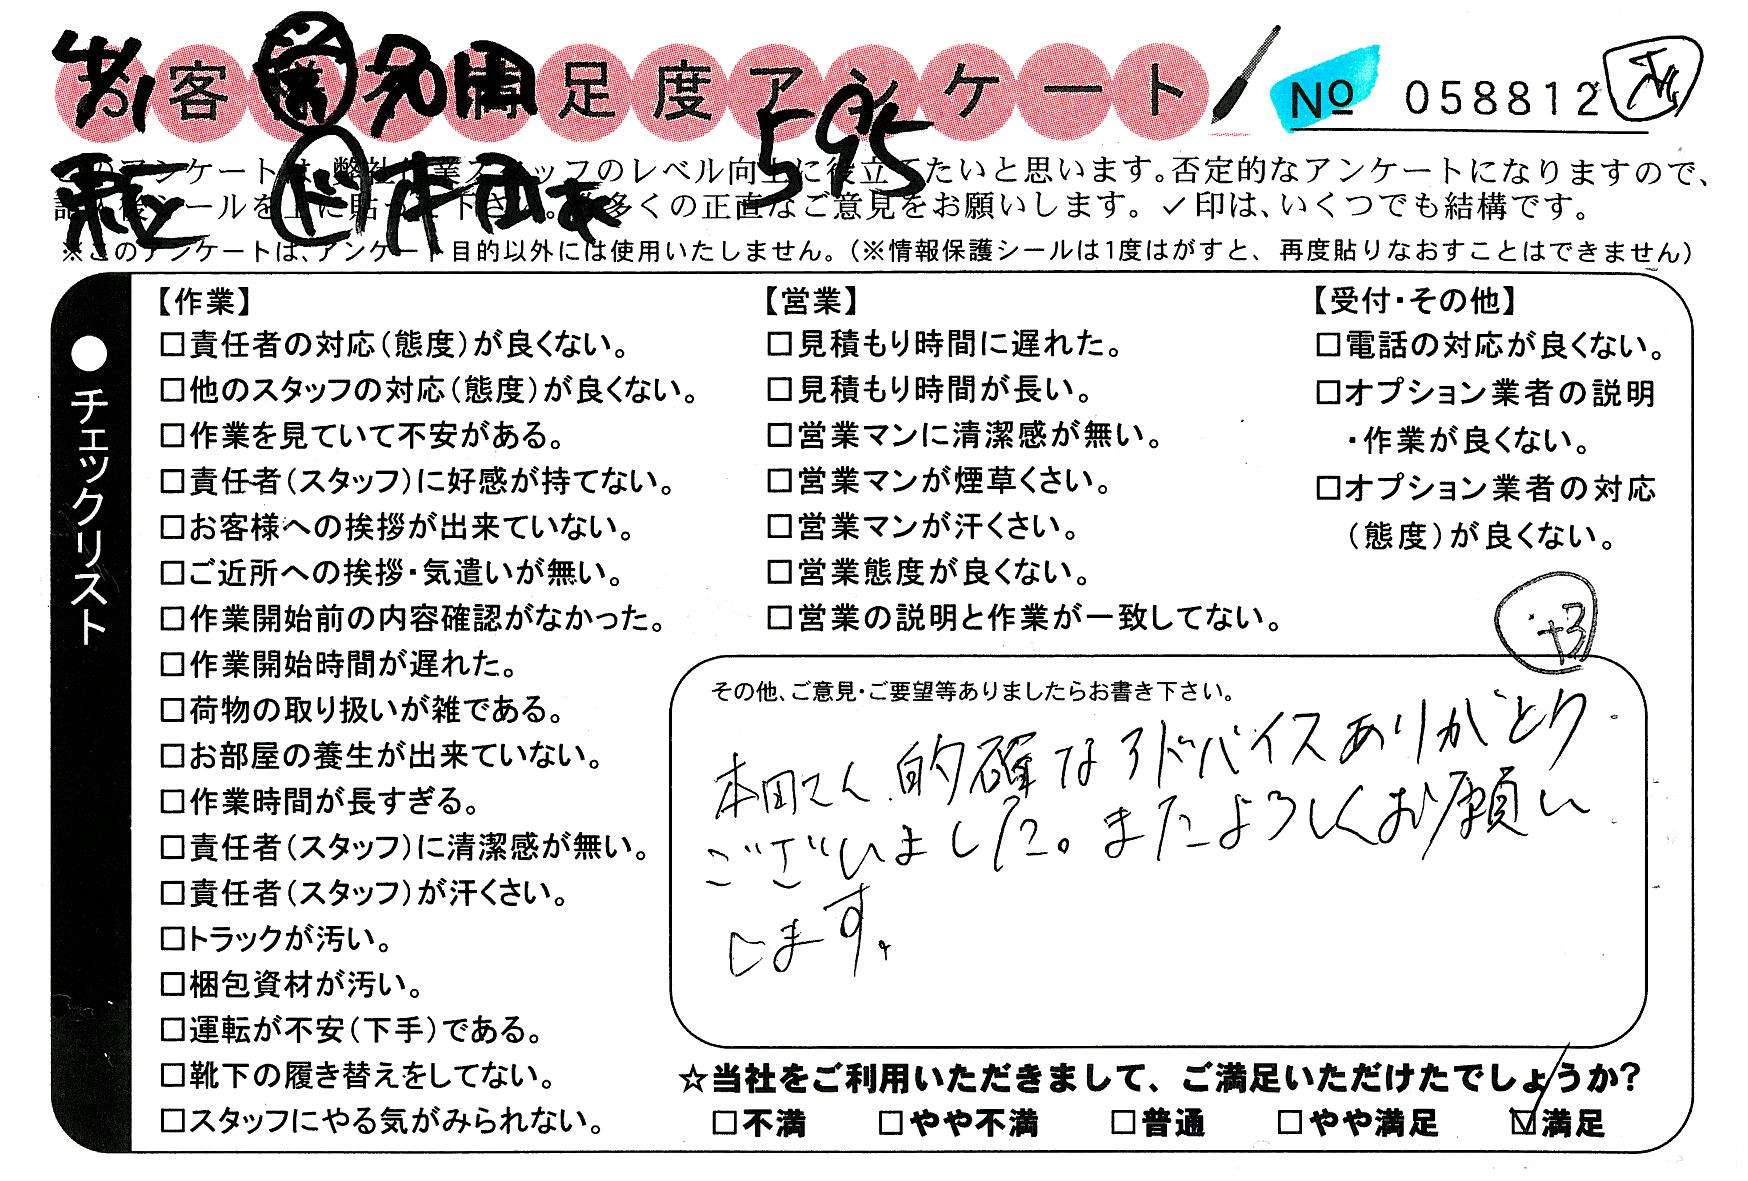 お客様満足度アンケート
№ 058812
4/1
595
このアンケートは、弊社作業スタッフのレベル向上に役立てたいと思います。否定的なアンケートになりますので、
記入後シールを上に貼って下さい。数多くの正直なご意見をお願いします。✓印は、いくつでも結構です。
※このアンケートは、アンケート目的以外には使用いたしません。(※情報保護シールは1度はがすと、再度貼りなおすことはできません)
●チェックリスト
【作業】
□責任者の対応(態度)が良くない。
□他のスタッフの対応(態度)が良くない。
□作業を見ていて不安がある。
□責任者(スタッフ)に好感が持てない。
□お客様への挨拶が出来ていない。
□ご近所への挨拶・気遣いが無い。
□作業開始前の内容確認がなかった。
□作業開始時間が遅れた。
□荷物の取り扱いが雑である。
□お部屋の養生が出来ていない。
□作業時間が長すぎる。
□責任者(スタッフ)に清潔感が無い。
□責任者(スタッフ)が汗くさい。
□トラックが汚い。
□梱包資材が汚い。
□運転が不安(下手)である。
□靴下の履き替えをしてない。
□スタッフにやる気がみられない。
【営業】
□見積もり時間に遅れた。
□見積もり時間が長い。
□営業マンに清潔感が無い。
□営業マンが煙草くさい。
□営業マンが汗くさい。
□営業態度が良くない。
□営業の説明と作業が一致してない。
【受付・その他】
□電話の対応が良くない。
□オプション業者の説明
・作業が良くない。
□オプション業者の対応
(態度)が良くない。
+3
その他、ご意見・ご要望等ありましたらお書き下さい。
本田さん、的確なアドバイスありがとう
ございました。またよろしくお願い
します。
☆当社をご利用いただきまして、ご満足いただけたでしょうか?
□不満 □やや不満 □普通 □やや満足 ☑満足